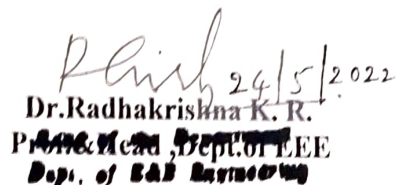 24/5/2022
Dr.Radhakrishna K. R.
Prof.& Head ,Dept.of EEE
Dept. of E&E Engineering